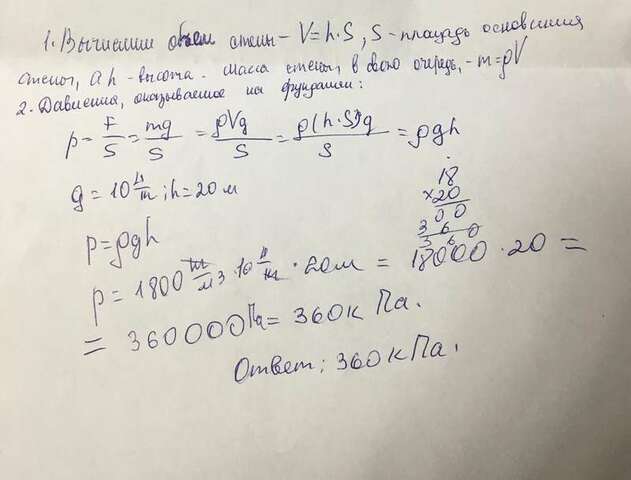 1. Вычислим объем стены - V=h·S, S - площадь основания
стены, а h - высота. Масса стены, в свою очередь, - m=ρV
2. Давления, оказываемое на фундамент:
p = F/S = mg/S = ρVg/S = ρ(h·S)g/S = ρgh
g = 10 Н/кг; h = 20 м
18
×20
00
36
360
p = ρgh
p = 1800 кг/м3 · 10 Н/кг · 20м = 18000 · 20 =
= 360000Па = 360к Па.
Ответ: 360кПа.